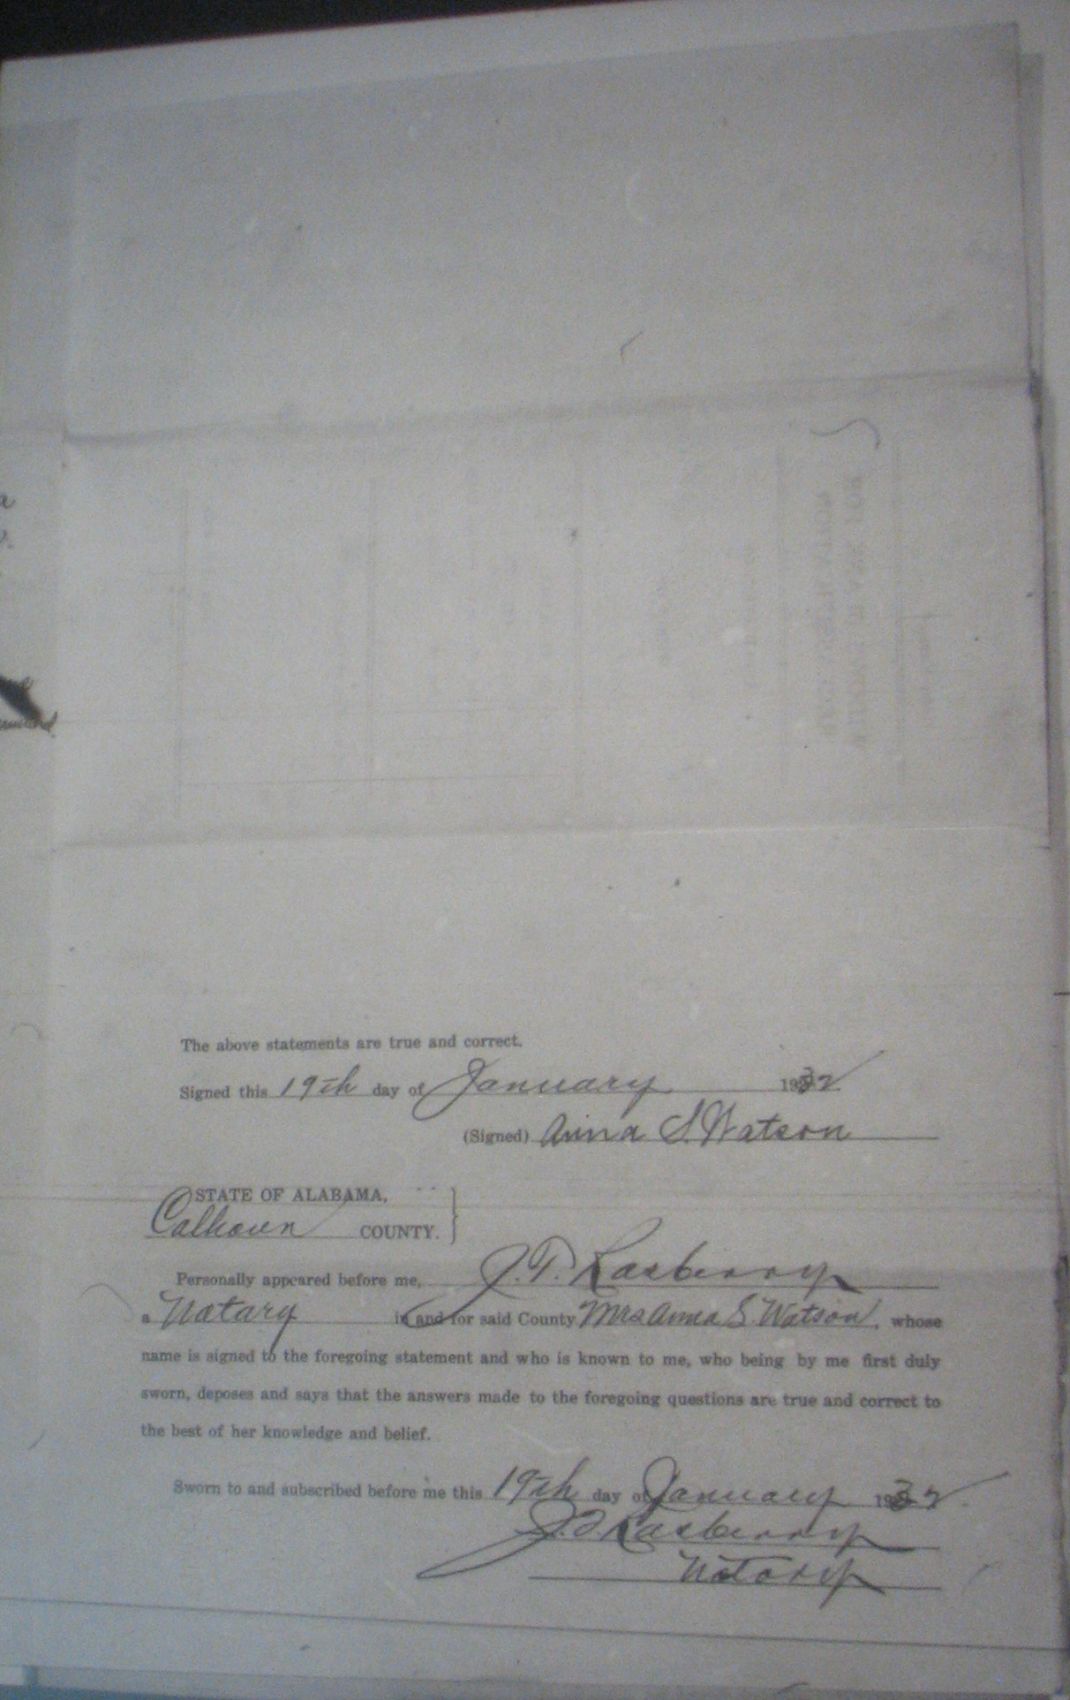 The above statements are true and correct.
Signed this 19th day of January 1932
(Signed) Anna S. Watson
STATE OF ALABAMA,
Calhoun COUNTY.
Personally appeared before me, J. T. Rasberry
a Notary in and for said County Mrs Anna S. Watson, whose
name is signed to the foregoing statement and who is known to me, who being by me first duly
sworn, deposes and says that the answers made to the foregoing questions are true and correct to
the best of her knowledge and belief.
Sworn to and subscribed before me this 19th day of January 1932.
J. T. Rasberry
Notary